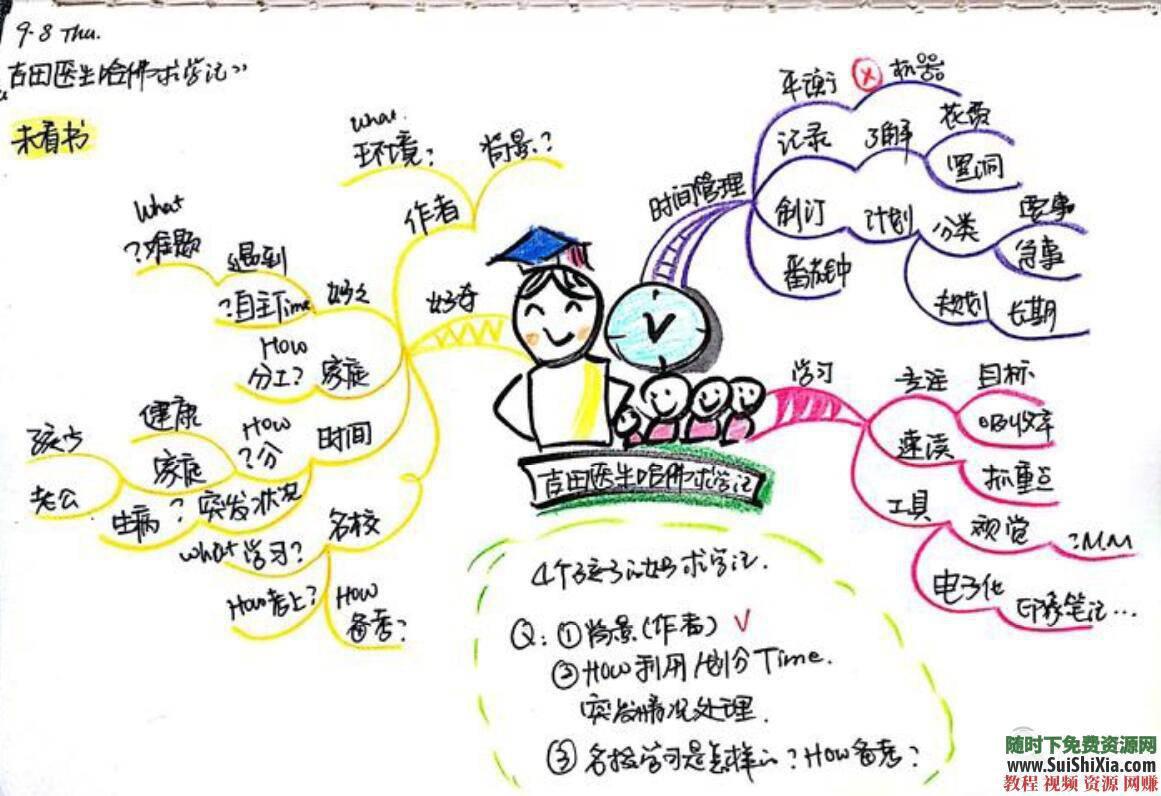 9.8 Thu.
吉田医生哈佛求学记》
未看书
what.
环境?
背景?
作者
What
?难题
遇到
?自主Time
妈妈
好奇
How
分工?
家庭
健康
How
?分
时间
孩子
家庭
老公
生病
?
突发状况
名校
What学习?
How考上?
How
备考?
时间管理
平衡
机器
记录
了解
花费
黑洞
制订
计划
分类
要事
急事
规划
长期
番茄钟
学习
专注
目标
速读
吸收率
抓重点
工具
视觉
?M.M
电子化
印象笔记...
吉田医生哈佛求学记
4个孩子的妈求学记.
Q: ①背景(作者) √
②How利用/划分Time.
突发情况处理.
③名校学习是怎样的?How备考?
随时下免费资源网
www.SuiShiXia.com
教程 视频 资源 网赚